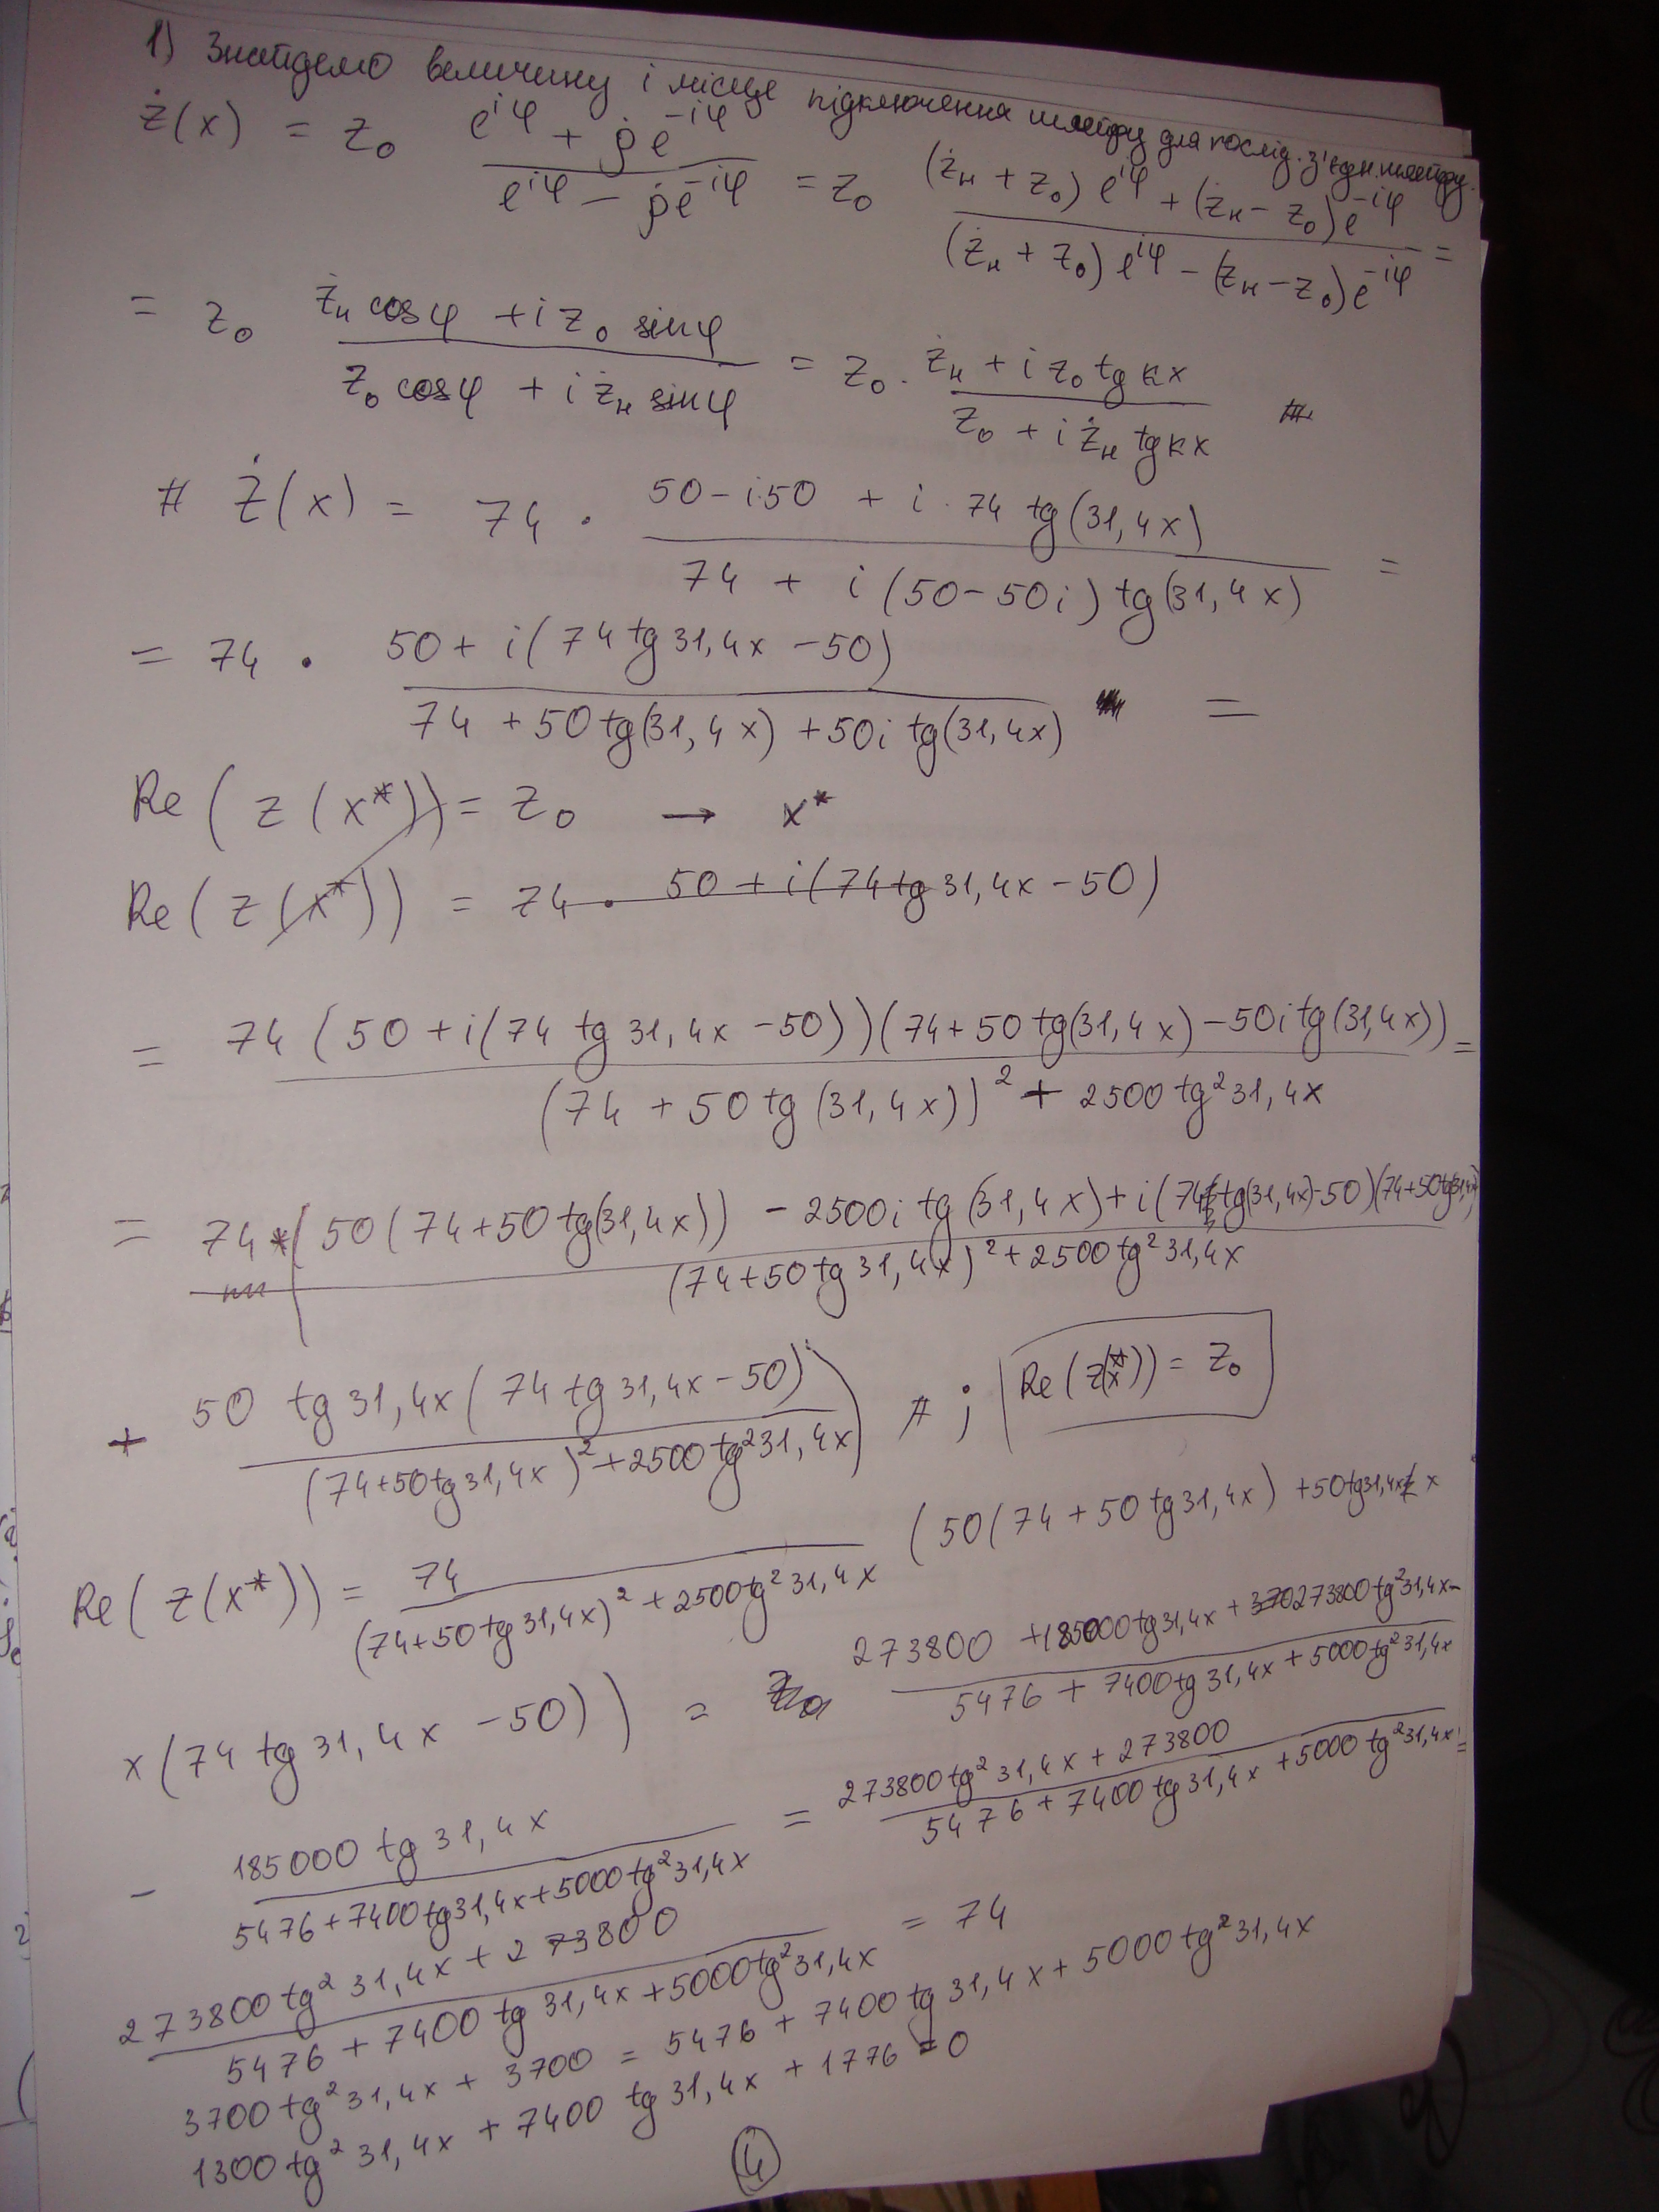 1) Знайдемо величину і місце підключення шлейфу для послід. з'єдн. шлейфу.
ż(x) = z₀ (e^{iφ} + ρ̇e^{-iφ})/(e^{iφ} − ρ̇e^{-iφ}) = z₀ ((ż_н + z₀)e^{iφ} + (ż_н − z₀)e^{-iφ})/((ż_н + z₀)e^{iφ} − (ż_н − z₀)e^{-iφ}) =
= z₀ (ż_н cosφ + i z₀ sinφ)/(z₀ cosφ + i ż_н sinφ) = z₀ · (ż_н + i z₀ tg kx)/(z₀ + i ż_н tg kx) #
# Ż(x) = 74 · (50 − i·50 + i · 74 tg(31,4x))/(74 + i(50 − 50i) tg(31,4x)) =
= 74 · (50 + i(74 tg 31,4x − 50))/(74 + 50 tg(31,4x) + 50i tg(31,4x)) =
Re(z(x*)) = z₀ → x*
Re(z(x*)) = 74 · 50 + i(74 tg 31,4x − 50)
= 74(50 + i(74 tg 31,4x − 50))(74 + 50 tg(31,4x) − 50i tg(31,4x))/((74 + 50 tg(31,4x))² + 2500 tg² 31,4x) =
= 74*(50(74 + 50 tg(31,4x)) − 2500i tg(31,4x) + i(74 tg(31,4x) − 50)(74 + 50 tg(31,4x))/((74 + 50 tg 31,4x)² + 2500 tg² 31,4x)
+ 50 tg 31,4x(74 tg 31,4x − 50)/((74 + 50 tg 31,4x)² + 2500 tg² 31,4x)) # ; Re(z(x*)) = z₀
Re(z(x*)) = 74/((74 + 50 tg 31,4x)² + 2500 tg² 31,4x) (50(74 + 50 tg 31,4x) + 50 tg 31,4x x
x(74 tg 31,4x − 50)) = (273800 + 185000 tg 31,4x + 273800 tg² 31,4x −)/(5476 + 7400 tg 31,4x + 5000 tg² 31,4x)
− 185000 tg 31,4x/(5476 + 7400 tg 31,4x + 5000 tg² 31,4x) = (273800 tg² 31,4x + 273800)/(5476 + 7400 tg 31,4x + 5000 tg² 31,4x) =
(273800 tg² 31,4x + 273800)/(5476 + 7400 tg 31,4x + 5000 tg² 31,4x) = 74
3700 tg² 31,4x + 3700 = 5476 + 7400 tg 31,4x + 5000 tg² 31,4x
1300 tg² 31,4x + 7400 tg 31,4x + 1776 = 0
4